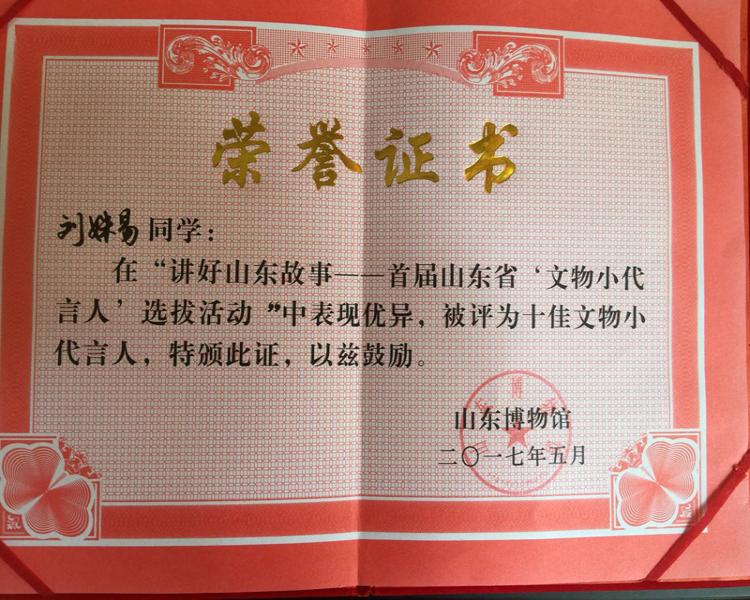 荣誉证书
刘姝易同学：
在“讲好山东故事——首届山东省‘文物小代
言人’选拔活动”中表现优异，被评为十佳文物小
代言人，特颁此证，以兹鼓励。
山东博物馆
二〇一七年五月